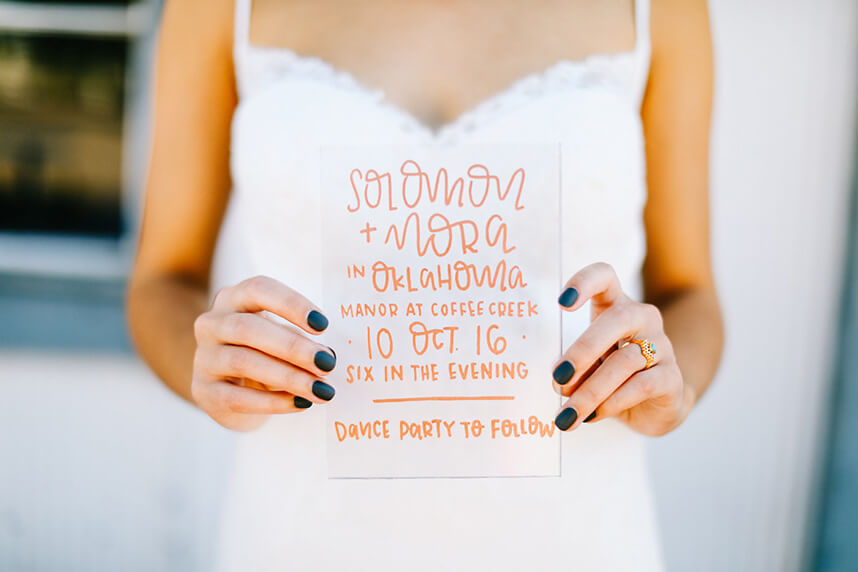 SOLOMON
+ NORA
IN OKLAHOMA
MANOR AT COFFEE CREEK
· 10 OCT. 16 ·
SIX IN THE EVENING
DANCE PARTY TO FOLLOW